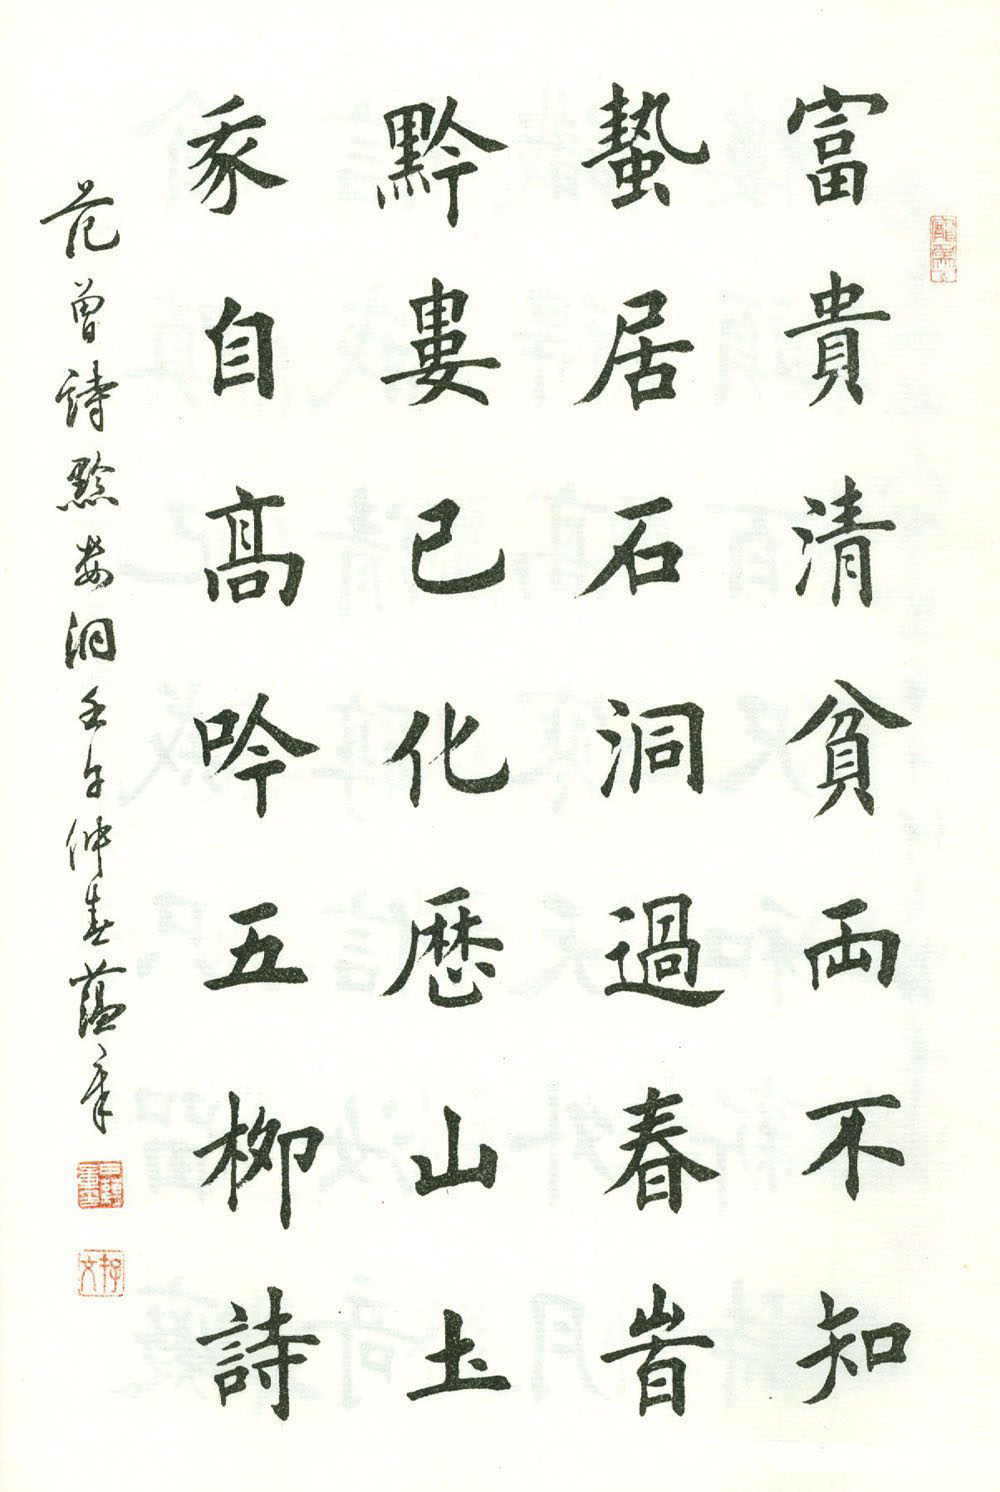 富貴清貧兩不知
蟄居石洞過春旹
黔婁已化歷山土
我自高吟五柳詩
范曾詩黔婁洞壬午仲春蘊章